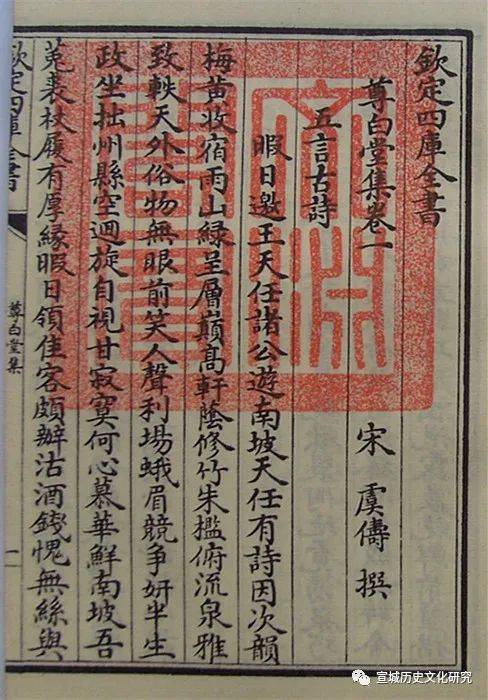 欽定四庫全書
尊白堂集卷一 宋 虞儔 撰
五言古詩
暇日邀王天任諸公遊南坡天任有詩因次韻
梅黃收宿雨山綠呈層巔髙軒蔭修竹朱檻俯流泉雅
致軼天外俗物無眼前笑人聲利場蛾眉競爭妍半生
政坐拙州縣空迴旋自視甘寂寞何心慕華鮮南坡吾
菟裘杖屨有厚緣暇日領佳客頗辦沽酒錢愧無絲與
欽定四庫全書
尊白堂集
一
文淵閣寶
宣城历史文化研究